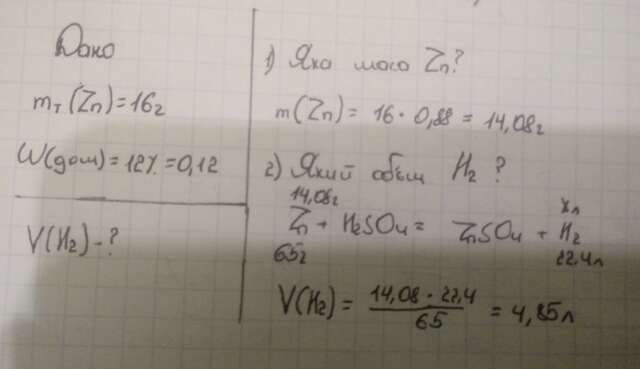 Дано
mт(Zn)=16г
W(дом)=12%=0,12
V(H₂)-?
1) Яка маса Zn?
m(Zn)= 16·0,88 = 14,08г
2) Який обєм H₂ ?
14,08г Xл
Zn + H₂SO₄ = ZnSO₄ + H₂
65г 22,4л
V(H₂) = 14,08·22,4 / 65 = 4,85л